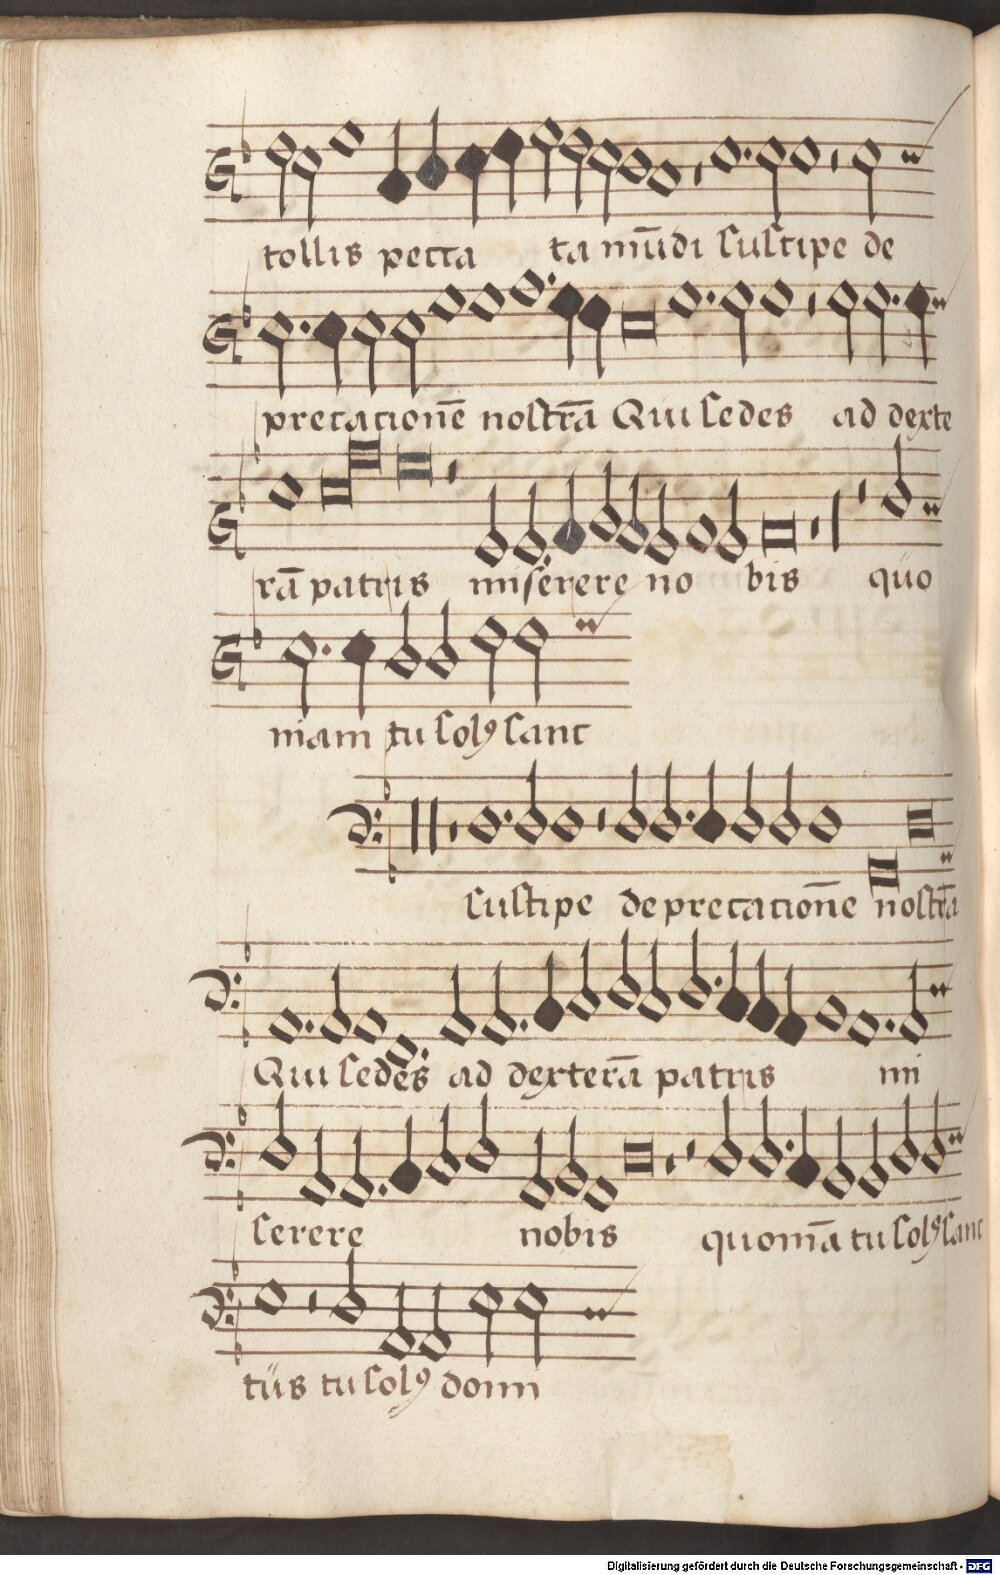 tollis pecca ta mūdi suscipe de
precacionē nostrā Qui sedes ad dexte
rā patris miserere no bis quo
niam tu solꝰ sanc
suscipe deprecacionē nostrā
Qui sedes ad dexterā patris mi
serere nobis quoniā tu solꝰ sanc
tus tu solꝰ domi
Digitalisierung gefördert durch die Deutsche Forschungsgemeinschaft - DFG